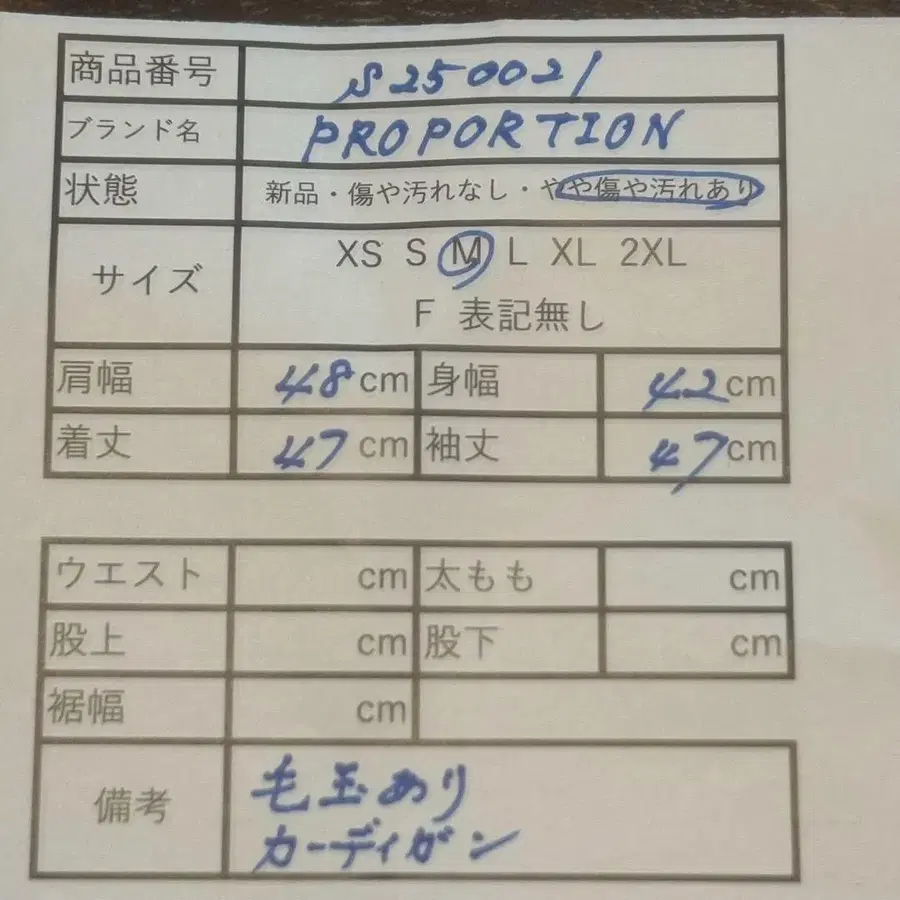 商品番号 S250021
ブランド名 PROPORTION
状態 新品・傷や汚れなし・やや傷や汚れあり
サイズ XS S M L XL 2XL
F 表記無し
肩幅 48cm 身幅 42cm
着丈 47cm 袖丈 47cm
ウエスト cm 太もも cm
股上 cm 股下 cm
裾幅 cm
備考 毛玉あり
カーディガン